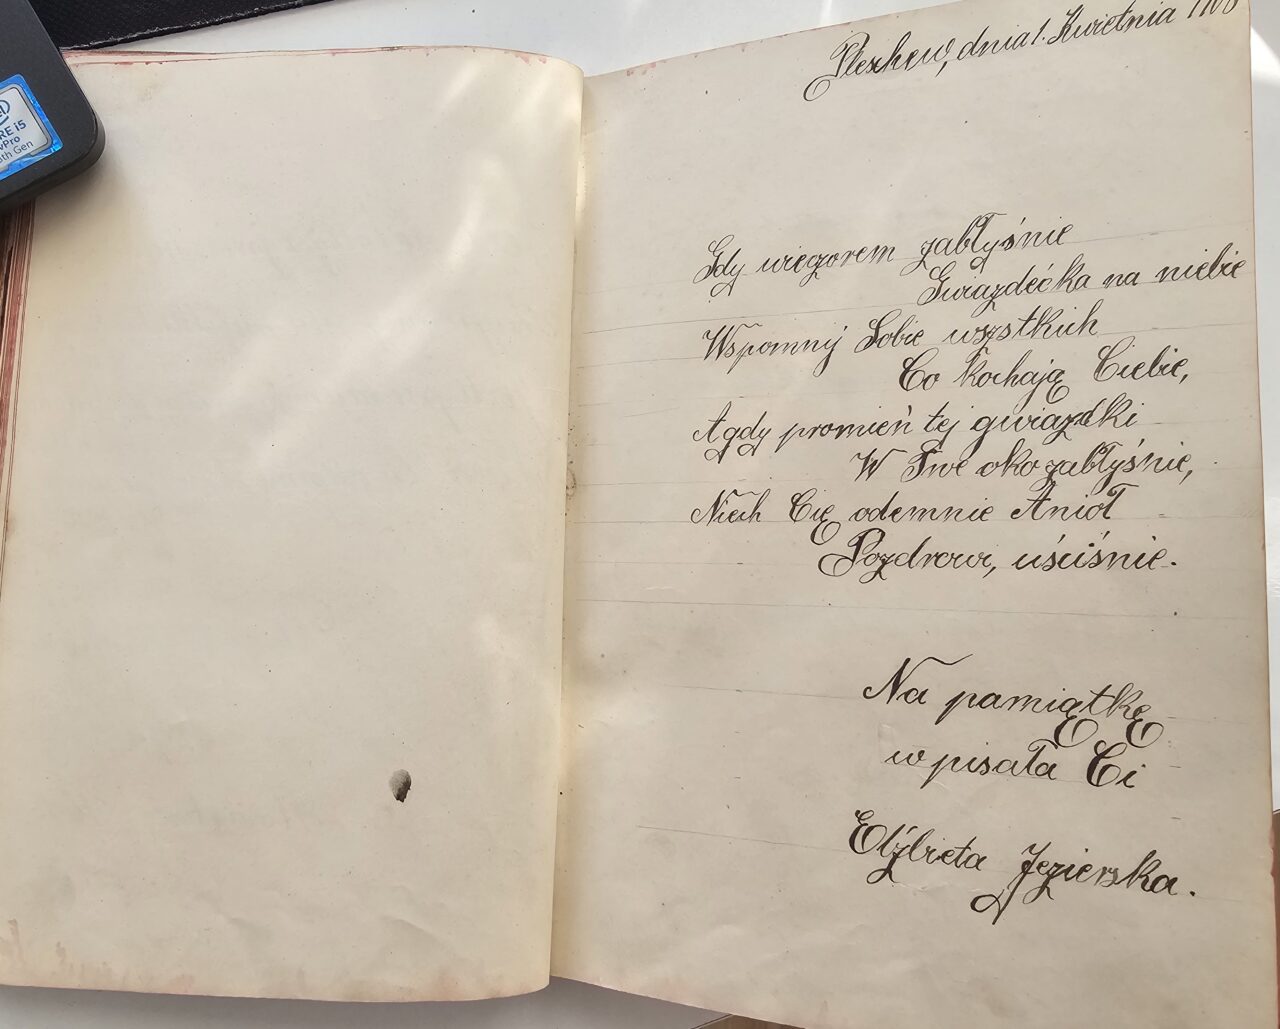 Pleszhew, dnia 1. Kwietnia
Gdy wieczorem zabłyśnie
Gwiazdećka na niebie
Wspomnij Sobie wszstkich
Co kochają Ciebie,
A gdy promień tej gwiazdki
W Twe oko zabłyśnie,
Niech Cię odemnie Anioł
Pozdrowi, uściśnie.
Na pamiątkę
wpisała Ci
Elżbieta Jezierska.
RE i5
vPro
th Gen